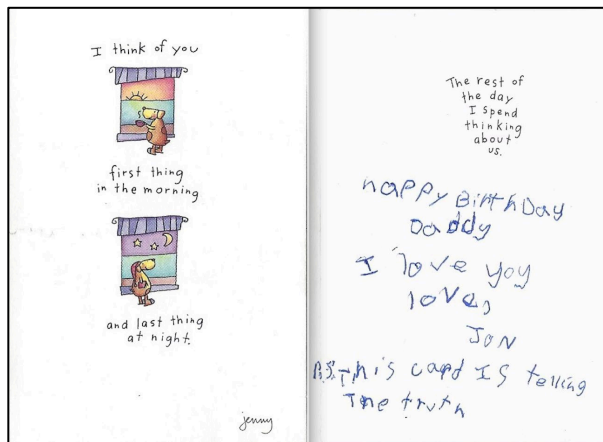 I think of you
first thing
in the morning
and last thing
at night.
jenny
The rest of
the day
I spend
thinking
about
us.
HAPPy BirthDay
Daddy
I love you
love,
JON
P.S. This card IS telling
The truth